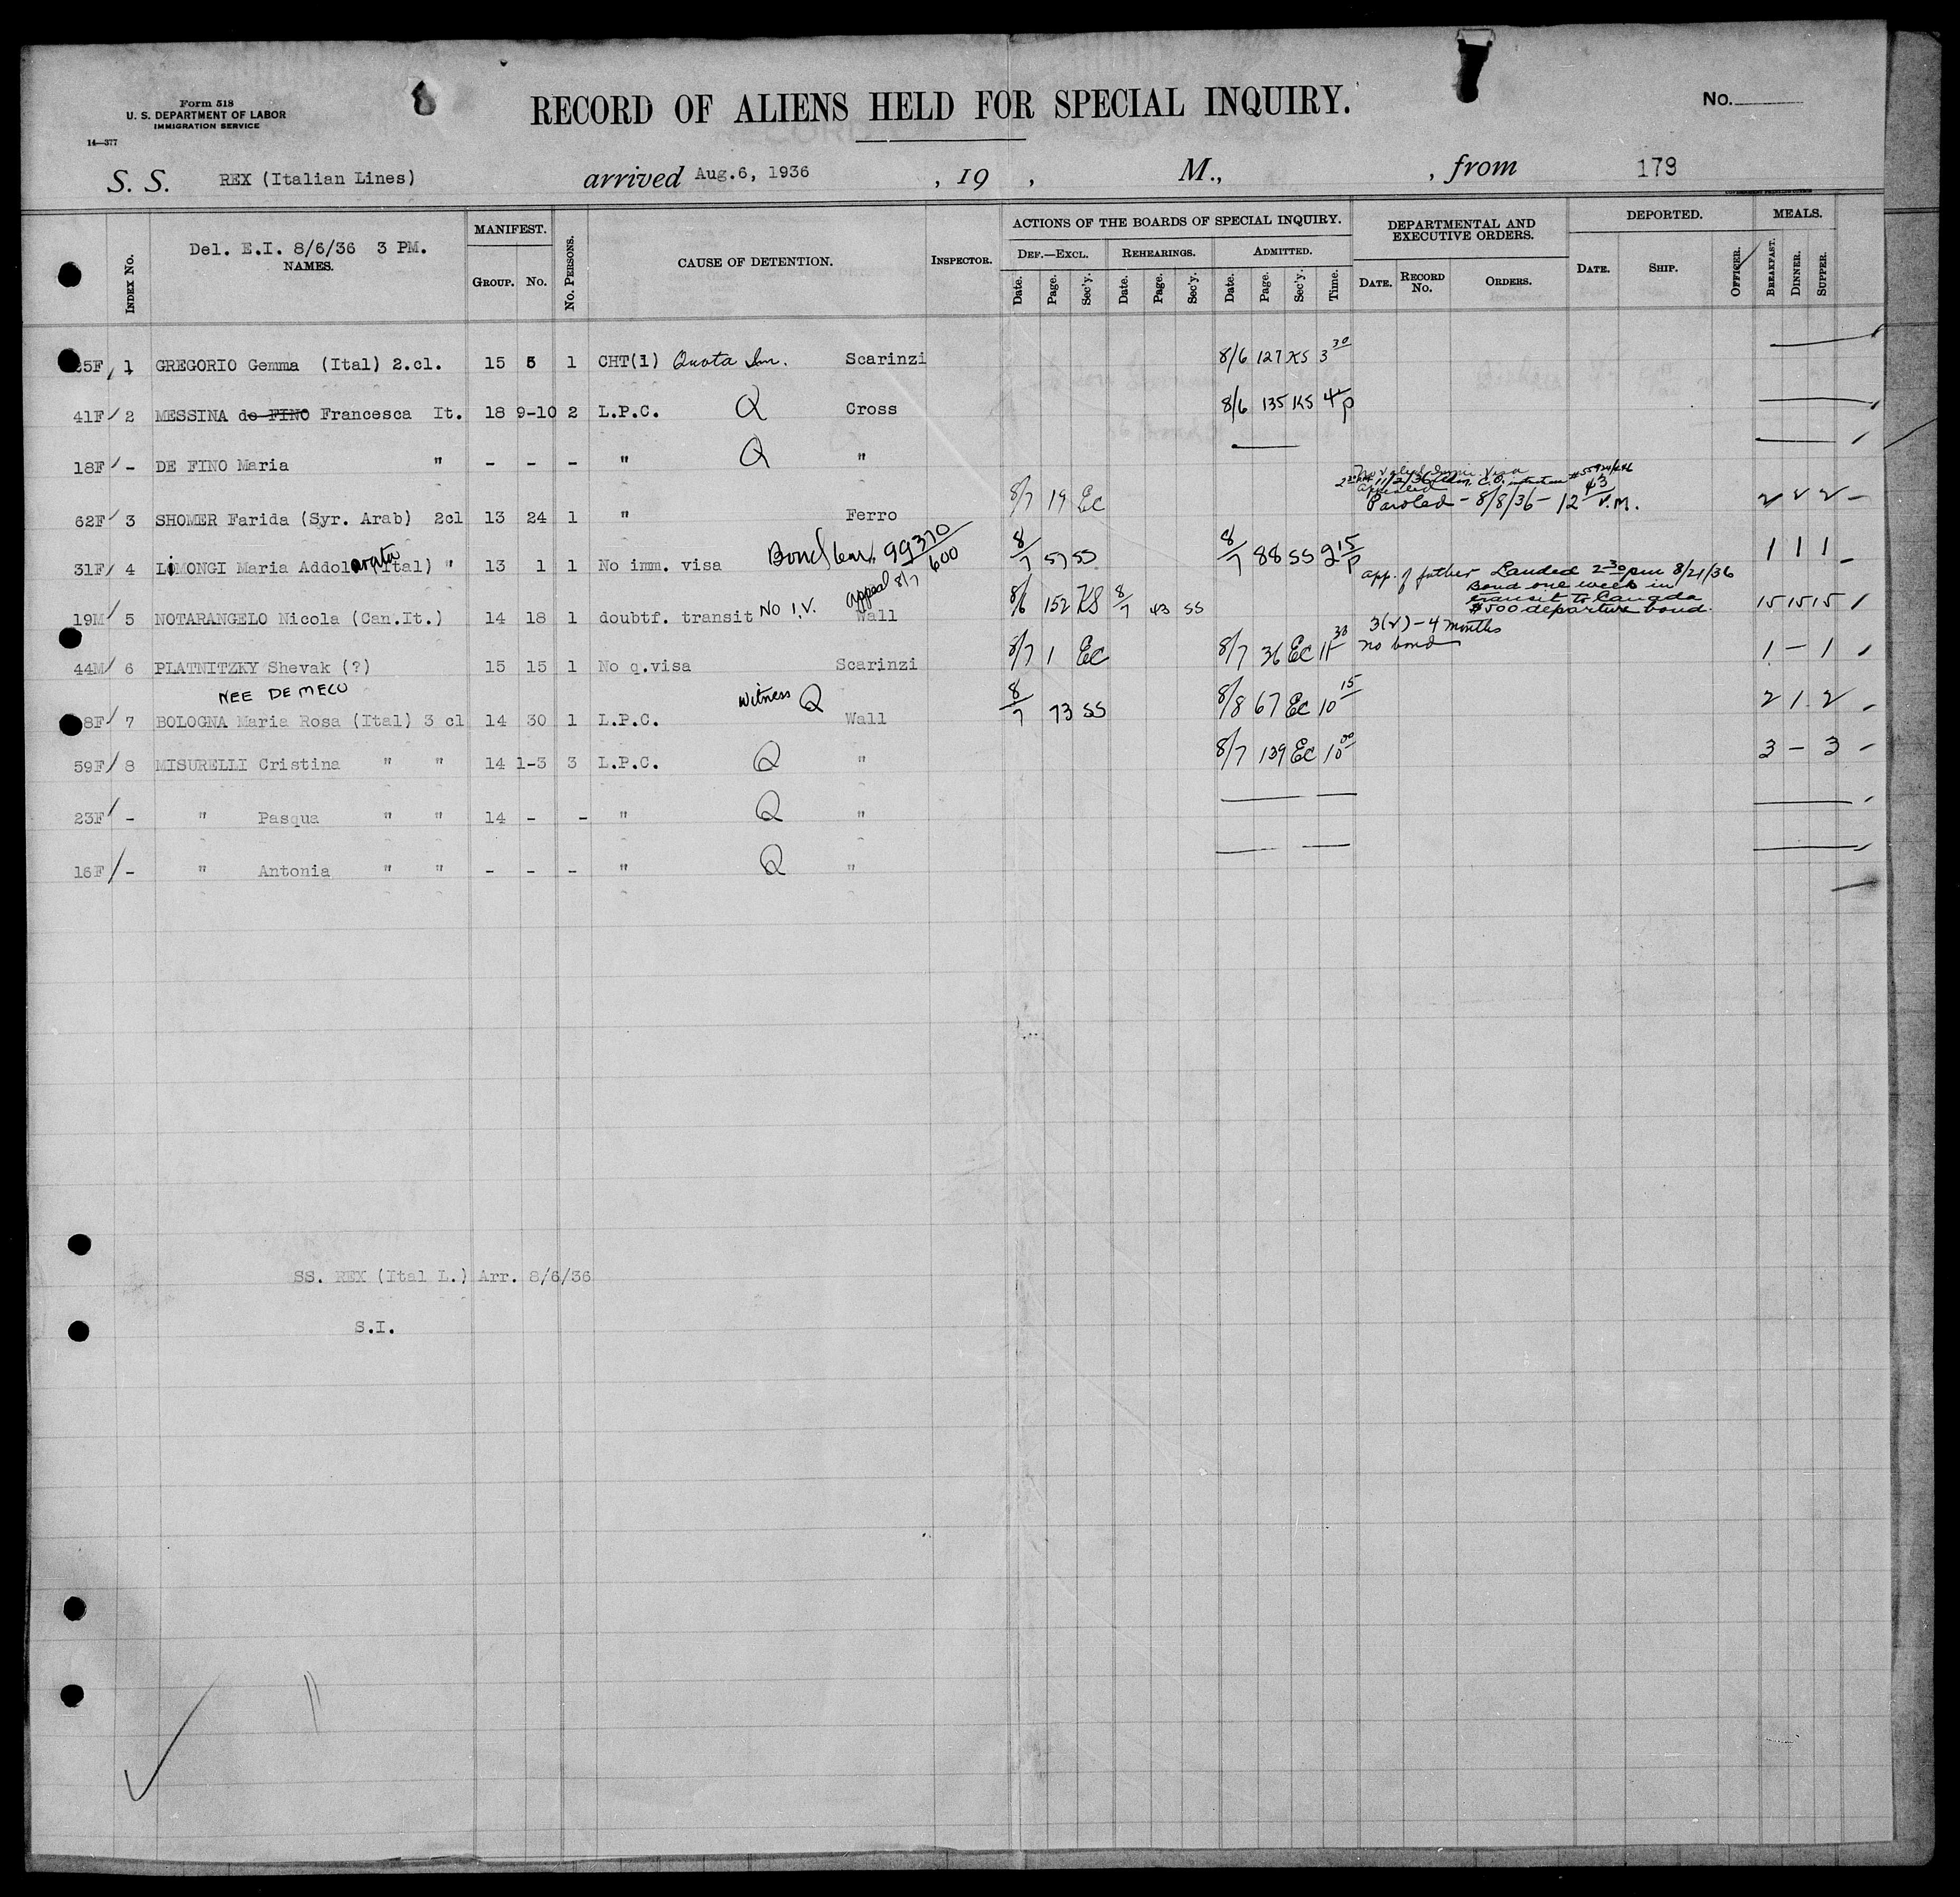 Form 518
U. S. DEPARTMENT OF LABOR
IMMIGRATION SERVICE
14—377
RECORD OF ALIENS HELD FOR SPECIAL INQUIRY.
No.
S. S. REX (Italian Lines) arrived Aug.6, 1936 , 19 , M., , from 179
INDEX No. Del. E.I. 8/6/36 3 PM. NAMES. MANIFEST. GROUP. No. No. PERSONS. CAUSE OF DETENTION. INSPECTOR.
ACTIONS OF THE BOARDS OF SPECIAL INQUIRY. DEPARTMENTAL AND EXECUTIVE ORDERS. DEPORTED. MEALS.
DEF.—EXCL. REHEARINGS. ADMITTED.
Date. Page. Sec'y. Date. Page. Sec'y. Date. Page. Sec'y. Time. DATE. RECORD No. ORDERS. DATE. SHIP. OFFICER. BREAKFAST. DINNER. SUPPER.
25F 1 GREGORIO Gemma (Ital) 2.cl. 15 5 1 CHT(1) Quota Im. Scarinzi 8/6 127 KS 3 30
41F 2 MESSINA de FINO Francesca It. 18 9-10 2 L.P.C. Q Cross 8/6 135 KS 4 p
18F - DE FINO Maria " - - - " Q "
62F 3 SHOMER Farida (Syr. Arab) 2cl 13 24 1 " Ferro 8/7 19 Ec
Paroled - 8/8/36 - 12 43 P.M. 2 2 2 -
31F 4 LiMONGI Maria Addolorata (Ital) " 13 1 1 No imm. visa 99370/600 8/7 57 SS 8/7 88 SS 2 15 p 1 1 1
19M 5 NOTARANGELO Nicola (Can.It.) 14 18 1 doubtf. transit No I.V. appeal 8/7 Wall 8/6 152 KS 8/7 43 SS
app. of father Landed 2 30 pm 8/21/36
Bond one week in
transit to Canada
$500 departure bond. 15 15 15
44M 6 PLATNITZKY Shevak (?) 15 15 1 No q.visa Scarinzi 8/7 1 Ec 8/7 36 Ec 11 30 3(2) - 4 months
no bond 1 - 1
NEE DE MEco
8F 7 BOLOGNA Maria Rosa (Ital) 3 cl 14 30 1 L.P.C. witness Q Wall 8/7 73 SS 8/8 67 Ec 10 15 2 1 2
59F 8 MISURELLI Cristina " " 14 1-3 3 L.P.C. Q " 8/7 139 Ec 10 00 3 - 3
23F - " Pasqua " " 14 - - " Q "
16F - " Antonia " " - - - " Q "
SS. REX (Ital L.) Arr. 8/6/36
S.I.